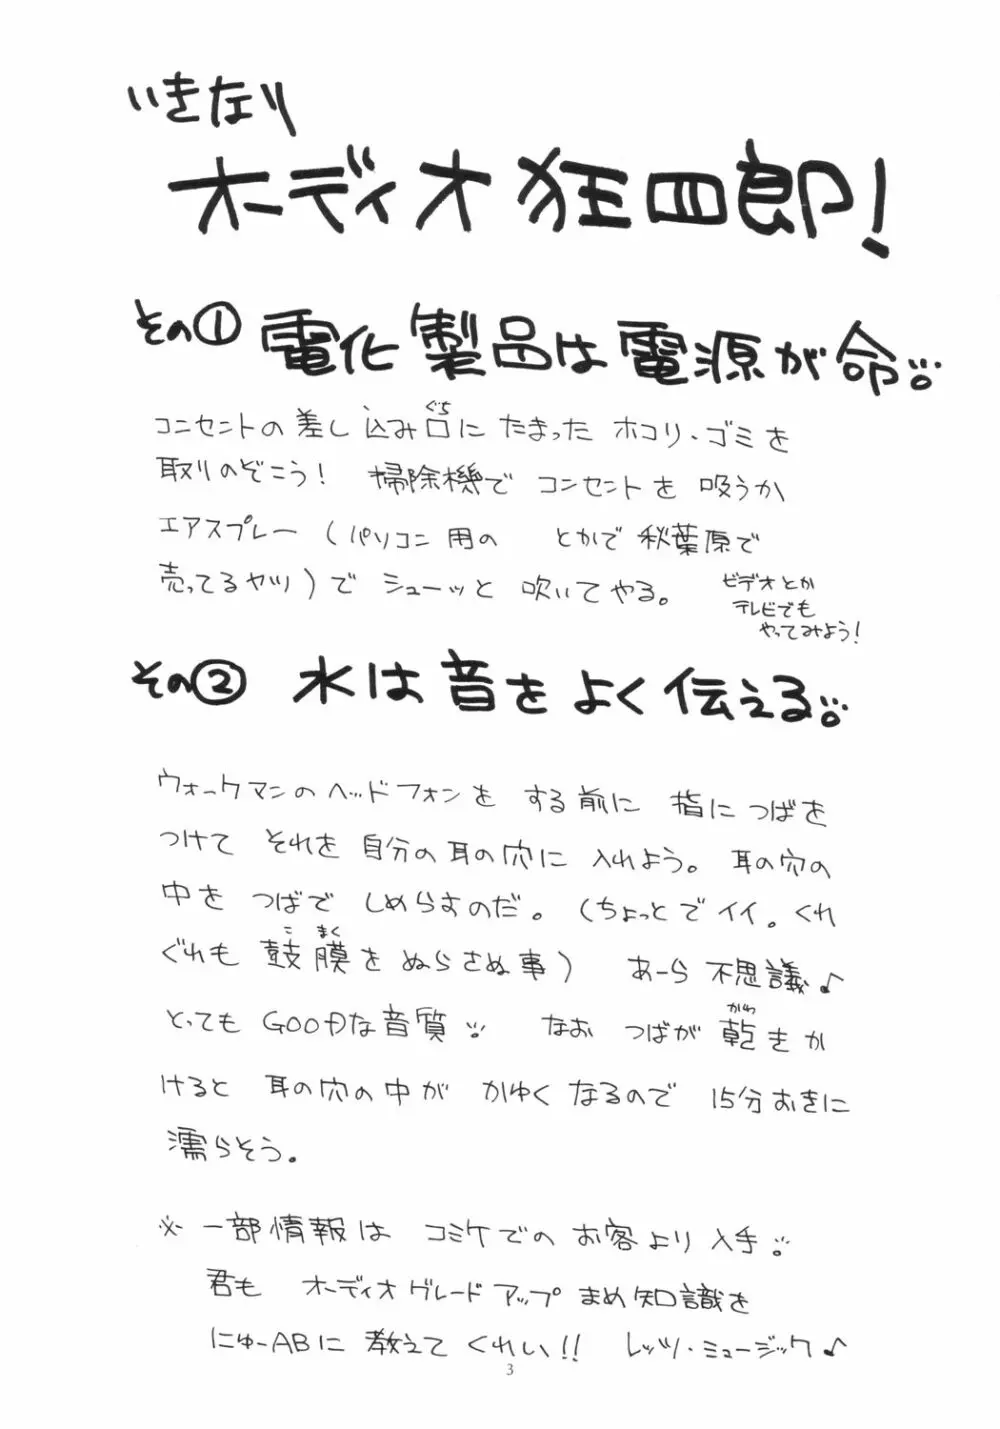 いきなり
オーディオ狂四郎!
その① 電化製品は電源が命
コンセントの差し込み口にたまったホコリ・ゴミを
ぐち
取りのぞこう! 掃除機でコンセントを吸うか
エアスプレー(パソコン用の とかで秋葉原で
売ってるヤツ)でシューッと吹いてやる。
ビデオとか
テレビでも
やってみよう!
その② 水は音をよく伝える
ウォークマンのヘッドフォンをする前に指につばを
つけてそれを自分の耳の穴に入れよう。耳の穴の
中をつばでしめらすのだ。(ちょっとでイイ。くれ
ぐれも鼓膜をぬらさぬ事) あーら不思議♪
こ まく
とってもGOODな音質 なおつばが乾きか
かわ
けると耳の穴の中がかゆくなるので15分おきに
濡らそう。
※一部情報はコミケでのお客より入手。
君もオーディオグレードアップまめ知識を
にゅーABに教えてくれい!! レッツ・ミュージック♪
3